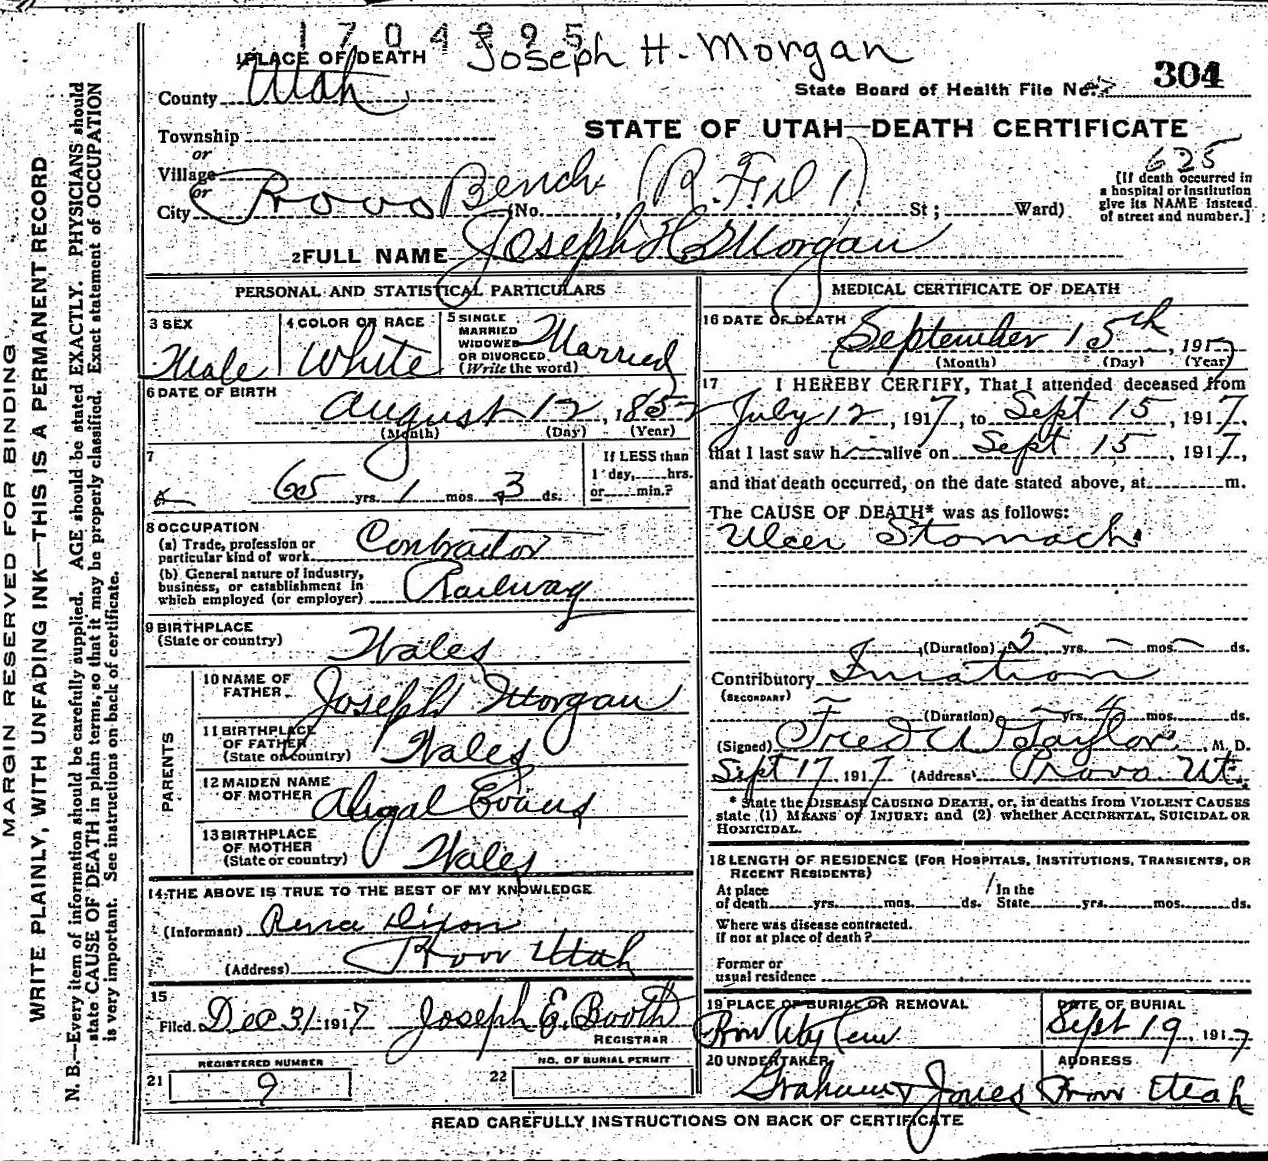 1704295
Joseph H. Morgan
1 PLACE OF DEATH
County Utah
State Board of Health File No. 304
Township
STATE OF UTAH—DEATH CERTIFICATE
or
Village
625
or
City Provo Bench (R.F.D 1) (No. St; Ward)
[If death occurred in
a hospital or institution
give its NAME instead
of street and number.]
2 FULL NAME Joseph H. Morgan
PERSONAL AND STATISTICAL PARTICULARS
3 SEX Male
4 COLOR OR RACE White
5 SINGLE
MARRIED
WIDOWED
OR DIVORCED
(Write the word) Married
6 DATE OF BIRTH
August 12, 1852
(Month) (Day) (Year)
7
65 yrs. 1 mos. 3 ds.
If LESS than
1 day, hrs.
or min.?
8 OCCUPATION
(a) Trade, profession or
particular kind of work Contractor
(b) General nature of industry,
business, or establishment in
which employed (or employer) Railway
9 BIRTHPLACE
(State or country) Wales
PARENTS
10 NAME OF
FATHER Joseph Morgan
11 BIRTHPLACE
OF FATHER
(State or country) Wales
12 MAIDEN NAME
OF MOTHER Abigal Evans
13 BIRTHPLACE
OF MOTHER
(State or country) Wales
14 THE ABOVE IS TRUE TO THE BEST OF MY KNOWLEDGE
(Informant) Rena Dixon
(Address) Provo Utah
15
Filed Dec 31 1917 Joseph E. Booth
REGISTRAR
REGISTERED NUMBER
21 9
NO. OF BURIAL PERMIT
22
MEDICAL CERTIFICATE OF DEATH
16 DATE OF DEATH
September 15th, 1917
(Month) (Day) (Year)
17 I HEREBY CERTIFY, That I attended deceased from
July 12, 1917, to Sept 15, 1917,
that I last saw h alive on Sept 15, 1917,
and that death occurred, on the date stated above, at m.
The CAUSE OF DEATH* was as follows:
Ulcer Stomach
(Duration) 5 yrs. — mos. — ds.
Contributory
(SECONDARY)
(Duration) — yrs. 4 mos. ds.
(Signed) Fred W Taylor M. D.
Sept 17, 1917 (Address) Provo Ut.
* State the DISEASE CAUSING DEATH, or, in deaths from VIOLENT CAUSES
state (1) MEANS OF INJURY; and (2) whether ACCIDENTAL, SUICIDAL OR
HOMICIDAL.
18 LENGTH OF RESIDENCE (FOR HOSPITALS, INSTITUTIONS, TRANSIENTS, OR
RECENT RESIDENTS)
At place
of death yrs. mos. ds.
In the
State yrs. mos. ds.
Where was disease contracted.
If not at place of death?
Former or
usual residence
19 PLACE OF BURIAL OR REMOVAL
Provo City Cem
DATE OF BURIAL
Sept 19, 1917
20 UNDERTAKER
Graham & Jones
ADDRESS
Provo Utah
READ CAREFULLY INSTRUCTIONS ON BACK OF CERTIFICATE
MARGIN RESERVED FOR BINDING
WRITE PLAINLY, WITH UNFADING INK—THIS IS A PERMANENT RECORD
N. B.—Every item of information should be carefully supplied. AGE should be stated EXACTLY. PHYSICIANS should
state CAUSE OF DEATH in plain terms, so that it may be properly classified. Exact statement of OCCUPATION
is very important. See instructions on back of certificate.